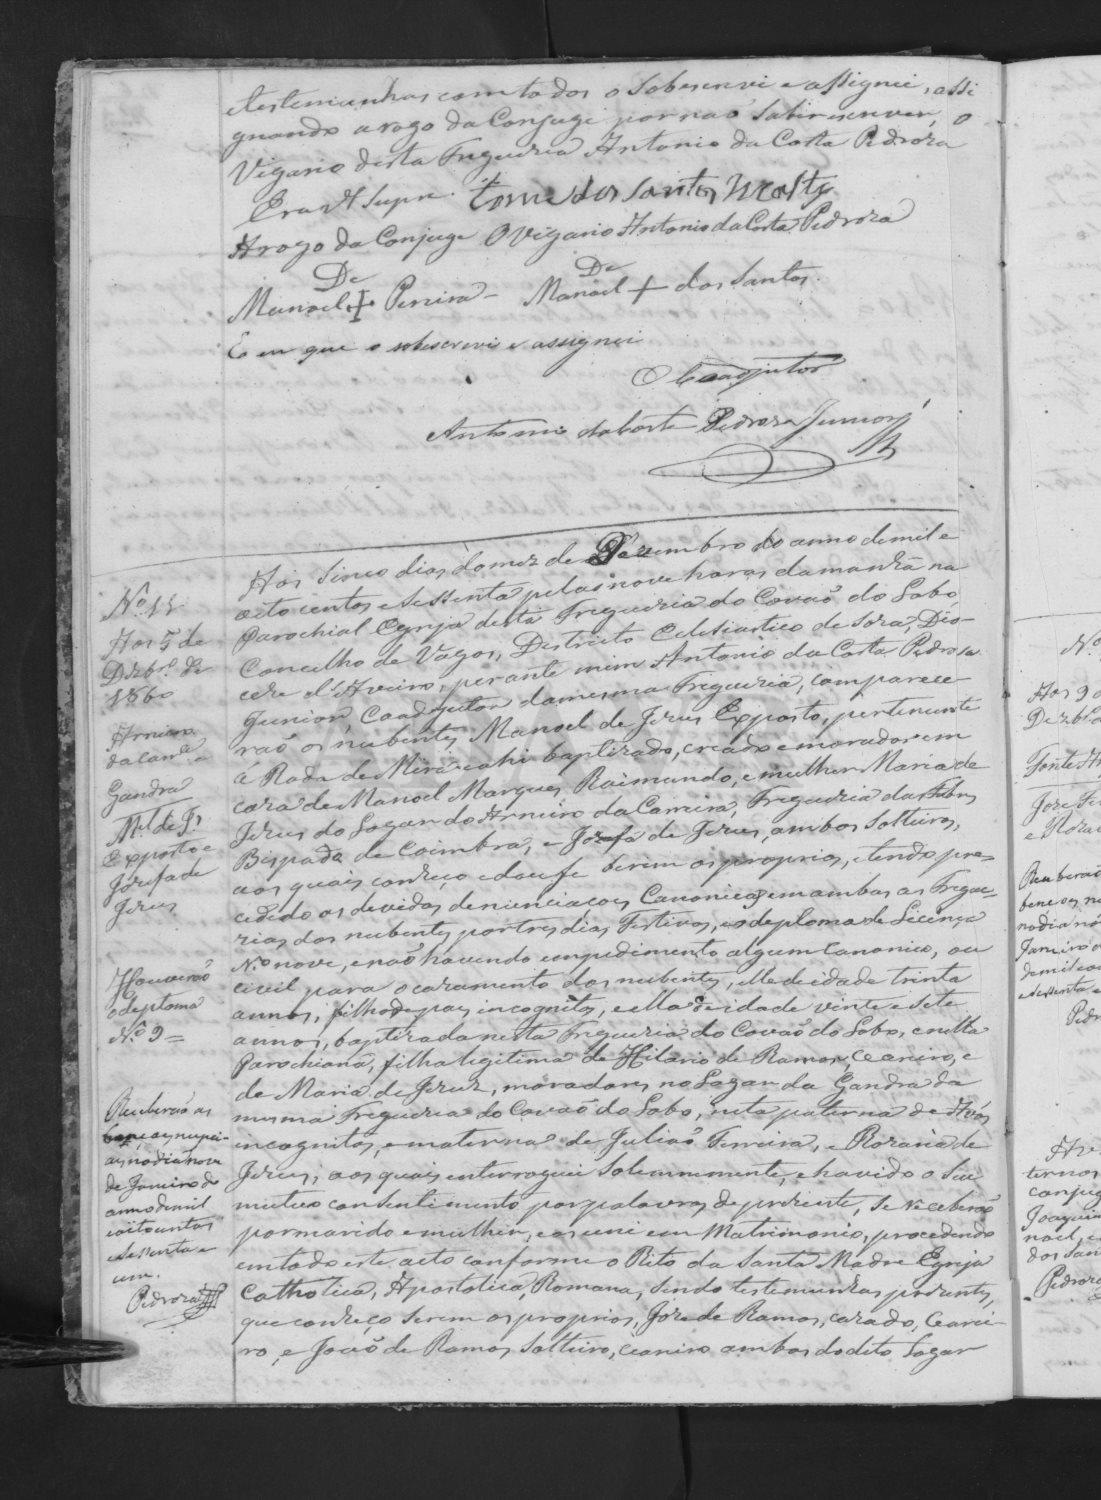 testemunhas com todos o sobescrevi e assignei, assi
gnando a rogo da Conjuge por não saber escrever, o
Vigario desta Freguezia Antonio da Costa Pedroza
Era Vt Supra. Tome dos Santos
A rogo da Conjuge O Vigario Antonio da Costa Pedroza
De De
Manoel + Pereira - Manoel + dos Santos.
E eu que o sobescrevi e assignei
O Coadjutor
Antonio da Costa Pedroza Junior
Nº 11
Aos 5 de
Dezbrº de
1860
Arneiro
da Carrª
Gandra
Mel de Js
Exposto e
Jozefa de
Jezus
Houverão
o deploma
Nº 9 =
Receberão as
bençoes nupci-
aes no dia nove
de Janeiro do
anno de mil
oito centos
e sessenta e
um.
Pedroza
Aos sinco dias do mez de Dezembro do anno de mil e
oito centos e sessenta pelas nove horas da manhã na
Parochial Egreja desta Freguezia do Covaõ do Lobo,
Concelho de Vagos, Destricto Eclesiastico de Soza, Dio-
ceze d'Aveiro, perante mim Antonio da Costa Pedroza
Junior Coadjutor da mesma Freguezia, comparece
raõ os nubentes Manoel de Jezus Exposto, pertencente
á Roda de Mira e ahi baptizado, creado e morador em
caza de Manoel Marques Raimundo, e mulher Maria de
Jezus do Logar do Arneiro da Carreira, Freguezia das Febres
Bispado de Coimbra, e Jozefa de Jezus, ambos Solteiros,
aos quais conheço e dou fé serem os proprios, e tendo pre=
cedido as devidas denunciacoes Canonicas em ambas as Fregue
zias dos nubentes por tres dias Festivos, e o deploma de Licença
Nº nove, e naõ havendo empedimento algum canonico, ou
civil para o cazamento dos nubentes, elle de idade trinta
annos, filho de pais incognitos, e ella de idade vinte e sete
annos, baptizada nesta Freguezia do Covaõ do Lobo, e nella
Parochiana, filha legitima de Hilario de Ramos, Ceareiro, e
de Maria de Jezuz, moradores no Logar da Gandra da
mesma Freguezia do Covaõ do Lobo, neta paterna de Avós
incognitos, e materna de Juliaõ Ferreira, e Rozaria de
Jezus, aos quais enterroguei Solemnemente, e havido o seu
mutuo consentimento por palavras de prezente, se receberaõ
por marido e mulher, e os uni em Matrimonio, procedendo
em todo este acto conforme o Rito da Santa Madre Egreja
Catholica, Apostolica, Romana, Sendo testemunhas prezentes,
que conheço serem os proprios, Joze de Ramos, cazado, Cearei-
ro, e Joaõ de Ramos Solteiro, ceareiro ambos do dito Logar
Nº
Aos 9 d
Dezbrº
Fonte
Joze
e Roza
Receberão
bençoes nu
no dia no
Janeiro
de mil oi
e sessenta
Pedr
ternos
conjug
Joaquim
noel, e
dos San
Pedroza